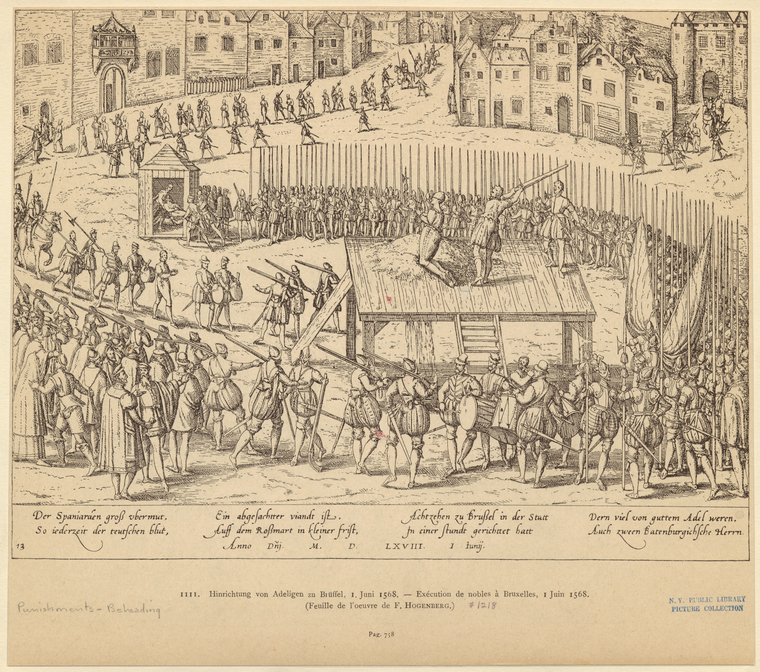 Der Spaniarden groß vbermut,
So iederzeit der teutschen blut,
Ein abgesachter viandt ist,
Auff dem Roßmart in kleiner frist,
Achtzehen zu Brußel in der Statt
In einer stundt gerichtet hatt
Dern viel von guttem Adel weren,
Auch zween Batenburgichsche Herrn
13
Anno Dñj. M. D. LXVIII. 1 Iunij.
1111. Hinrichtung von Adeligen zu Brüssel, 1. Juni 1568. — Exécution de nobles à Bruxelles, 1 Juin 1568.
(Feuille de l'oeuvre de F. HOGENBERG.) #1218
Punishments - Beheading
N. Y. PUBLIC LIBRARY
PICTURE COLLECTION
Pag. 758